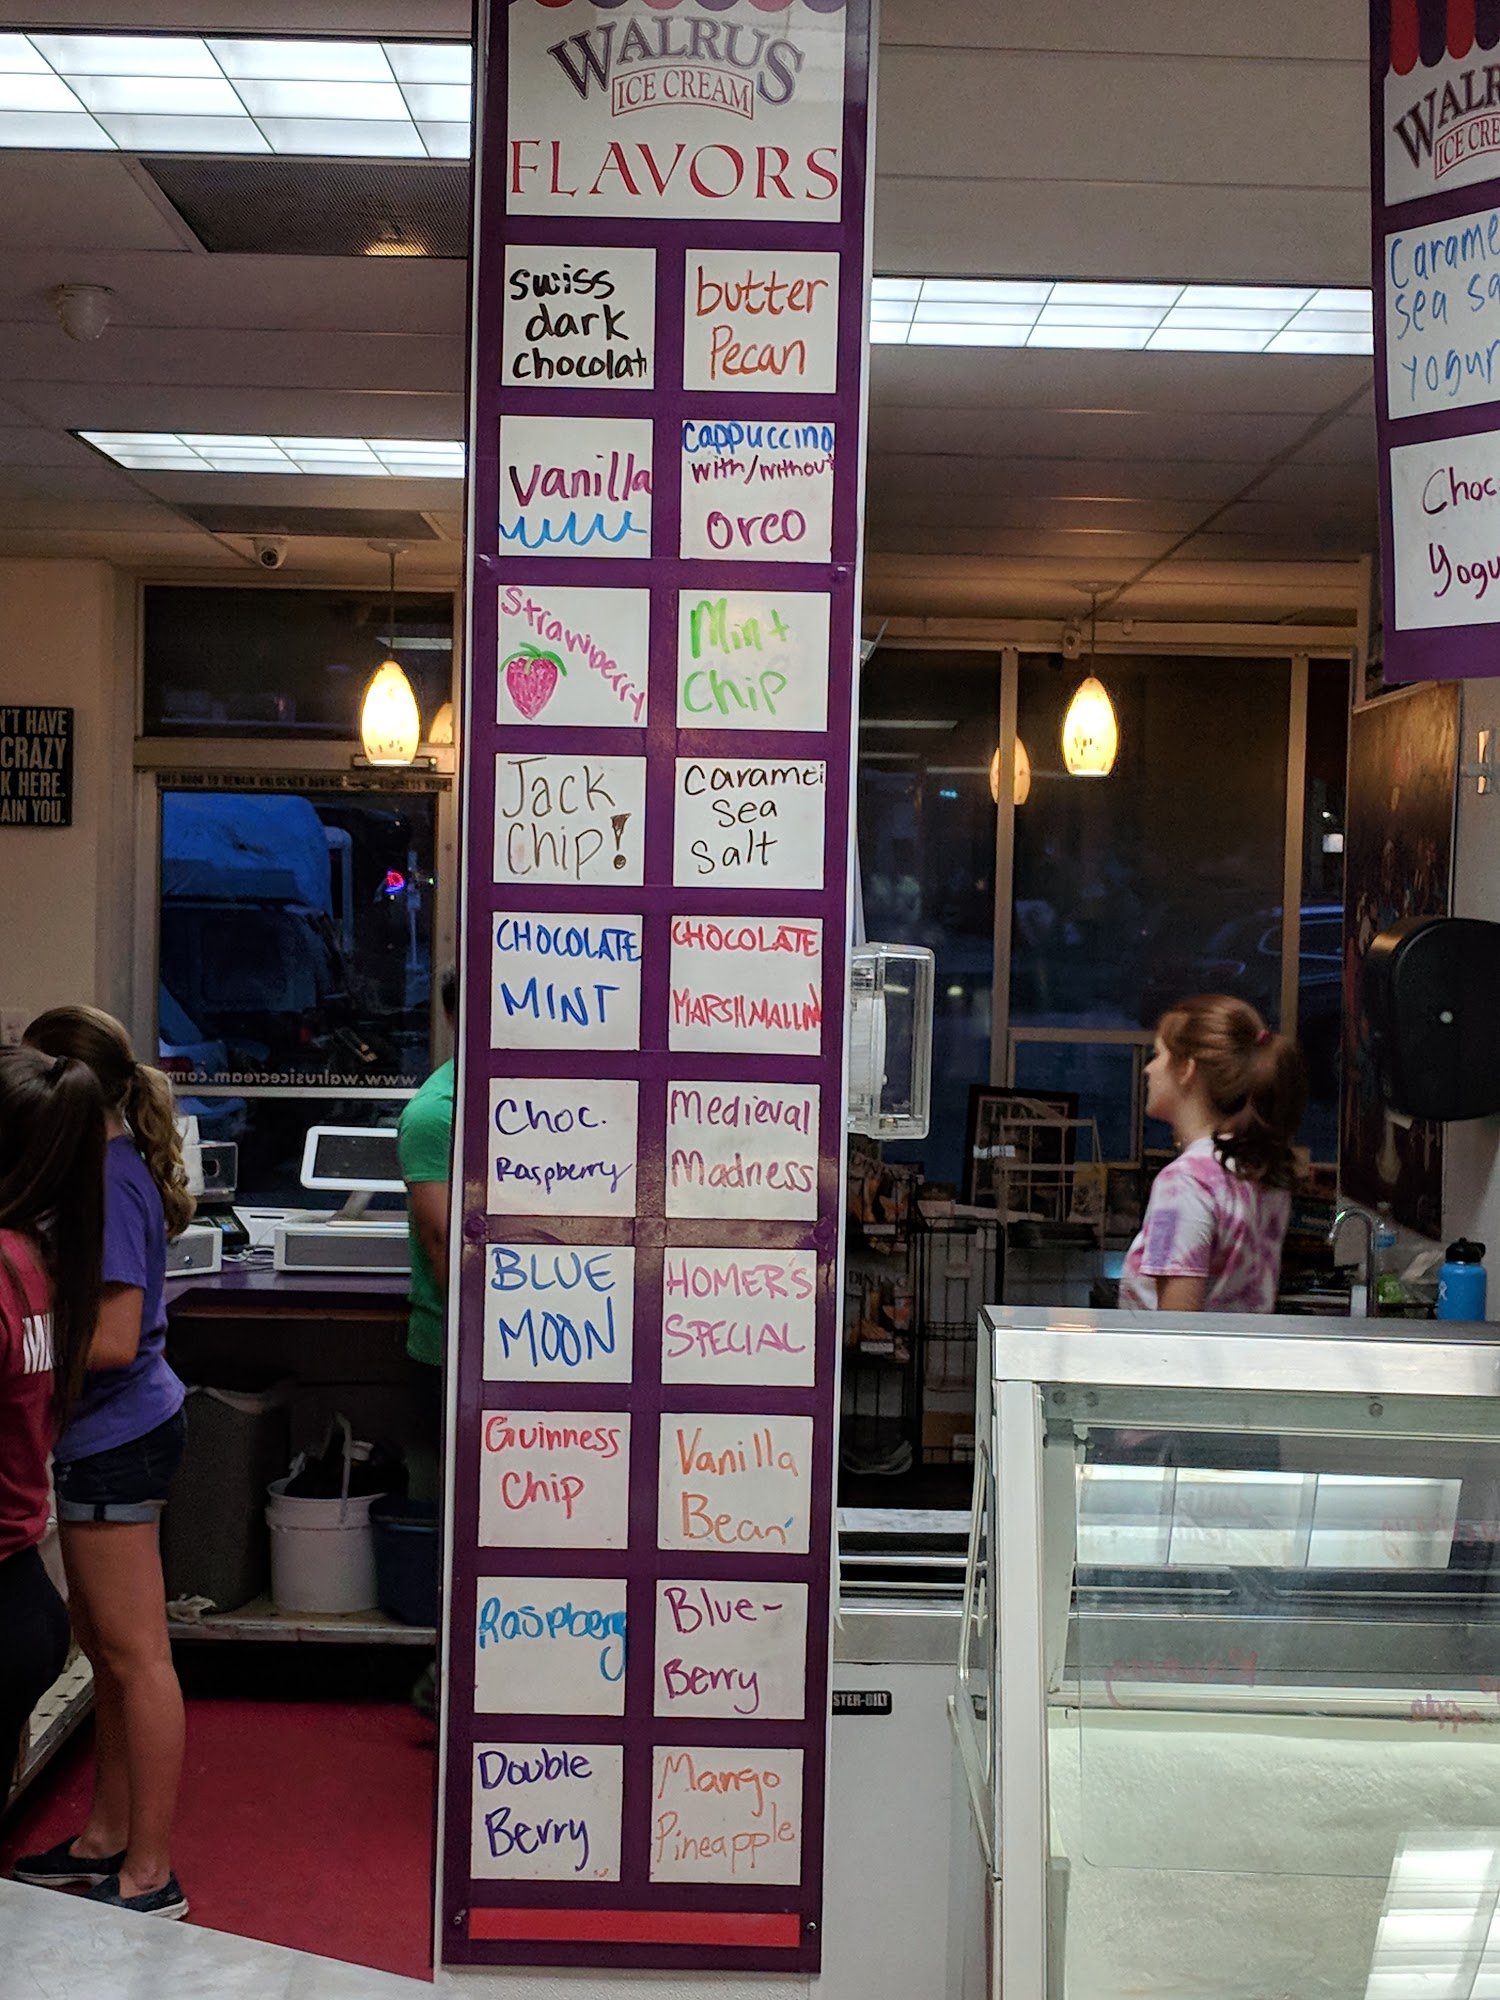 WALRUS
ICE CREAM
FLAVORS
swiss
dark
chocolat
butter
Pecan
vanilla
cappuccino
with/without
oreo
Strawberry
Mint
Chip
Jack
Chip!
Caramel
Sea
Salt
CHOCOLATE
MINT
CHOCOLATE
MARSHMALLOW
Choc.
Raspberry
Medieval
Madness
BLUE
MOON
HOMER'S
SPECIAL
Guinness
Chip
Vanilla
Bean
Raspberry
Blue-
Berry
Double
Berry
Mango
Pineapple
WALR
ICE CRE
Carame
sea sa
yogur
Choc
Yogu
N'T HAVE
CRAZY
K HERE.
AIN YOU.
www.walrusicecream.com
STER-BILT